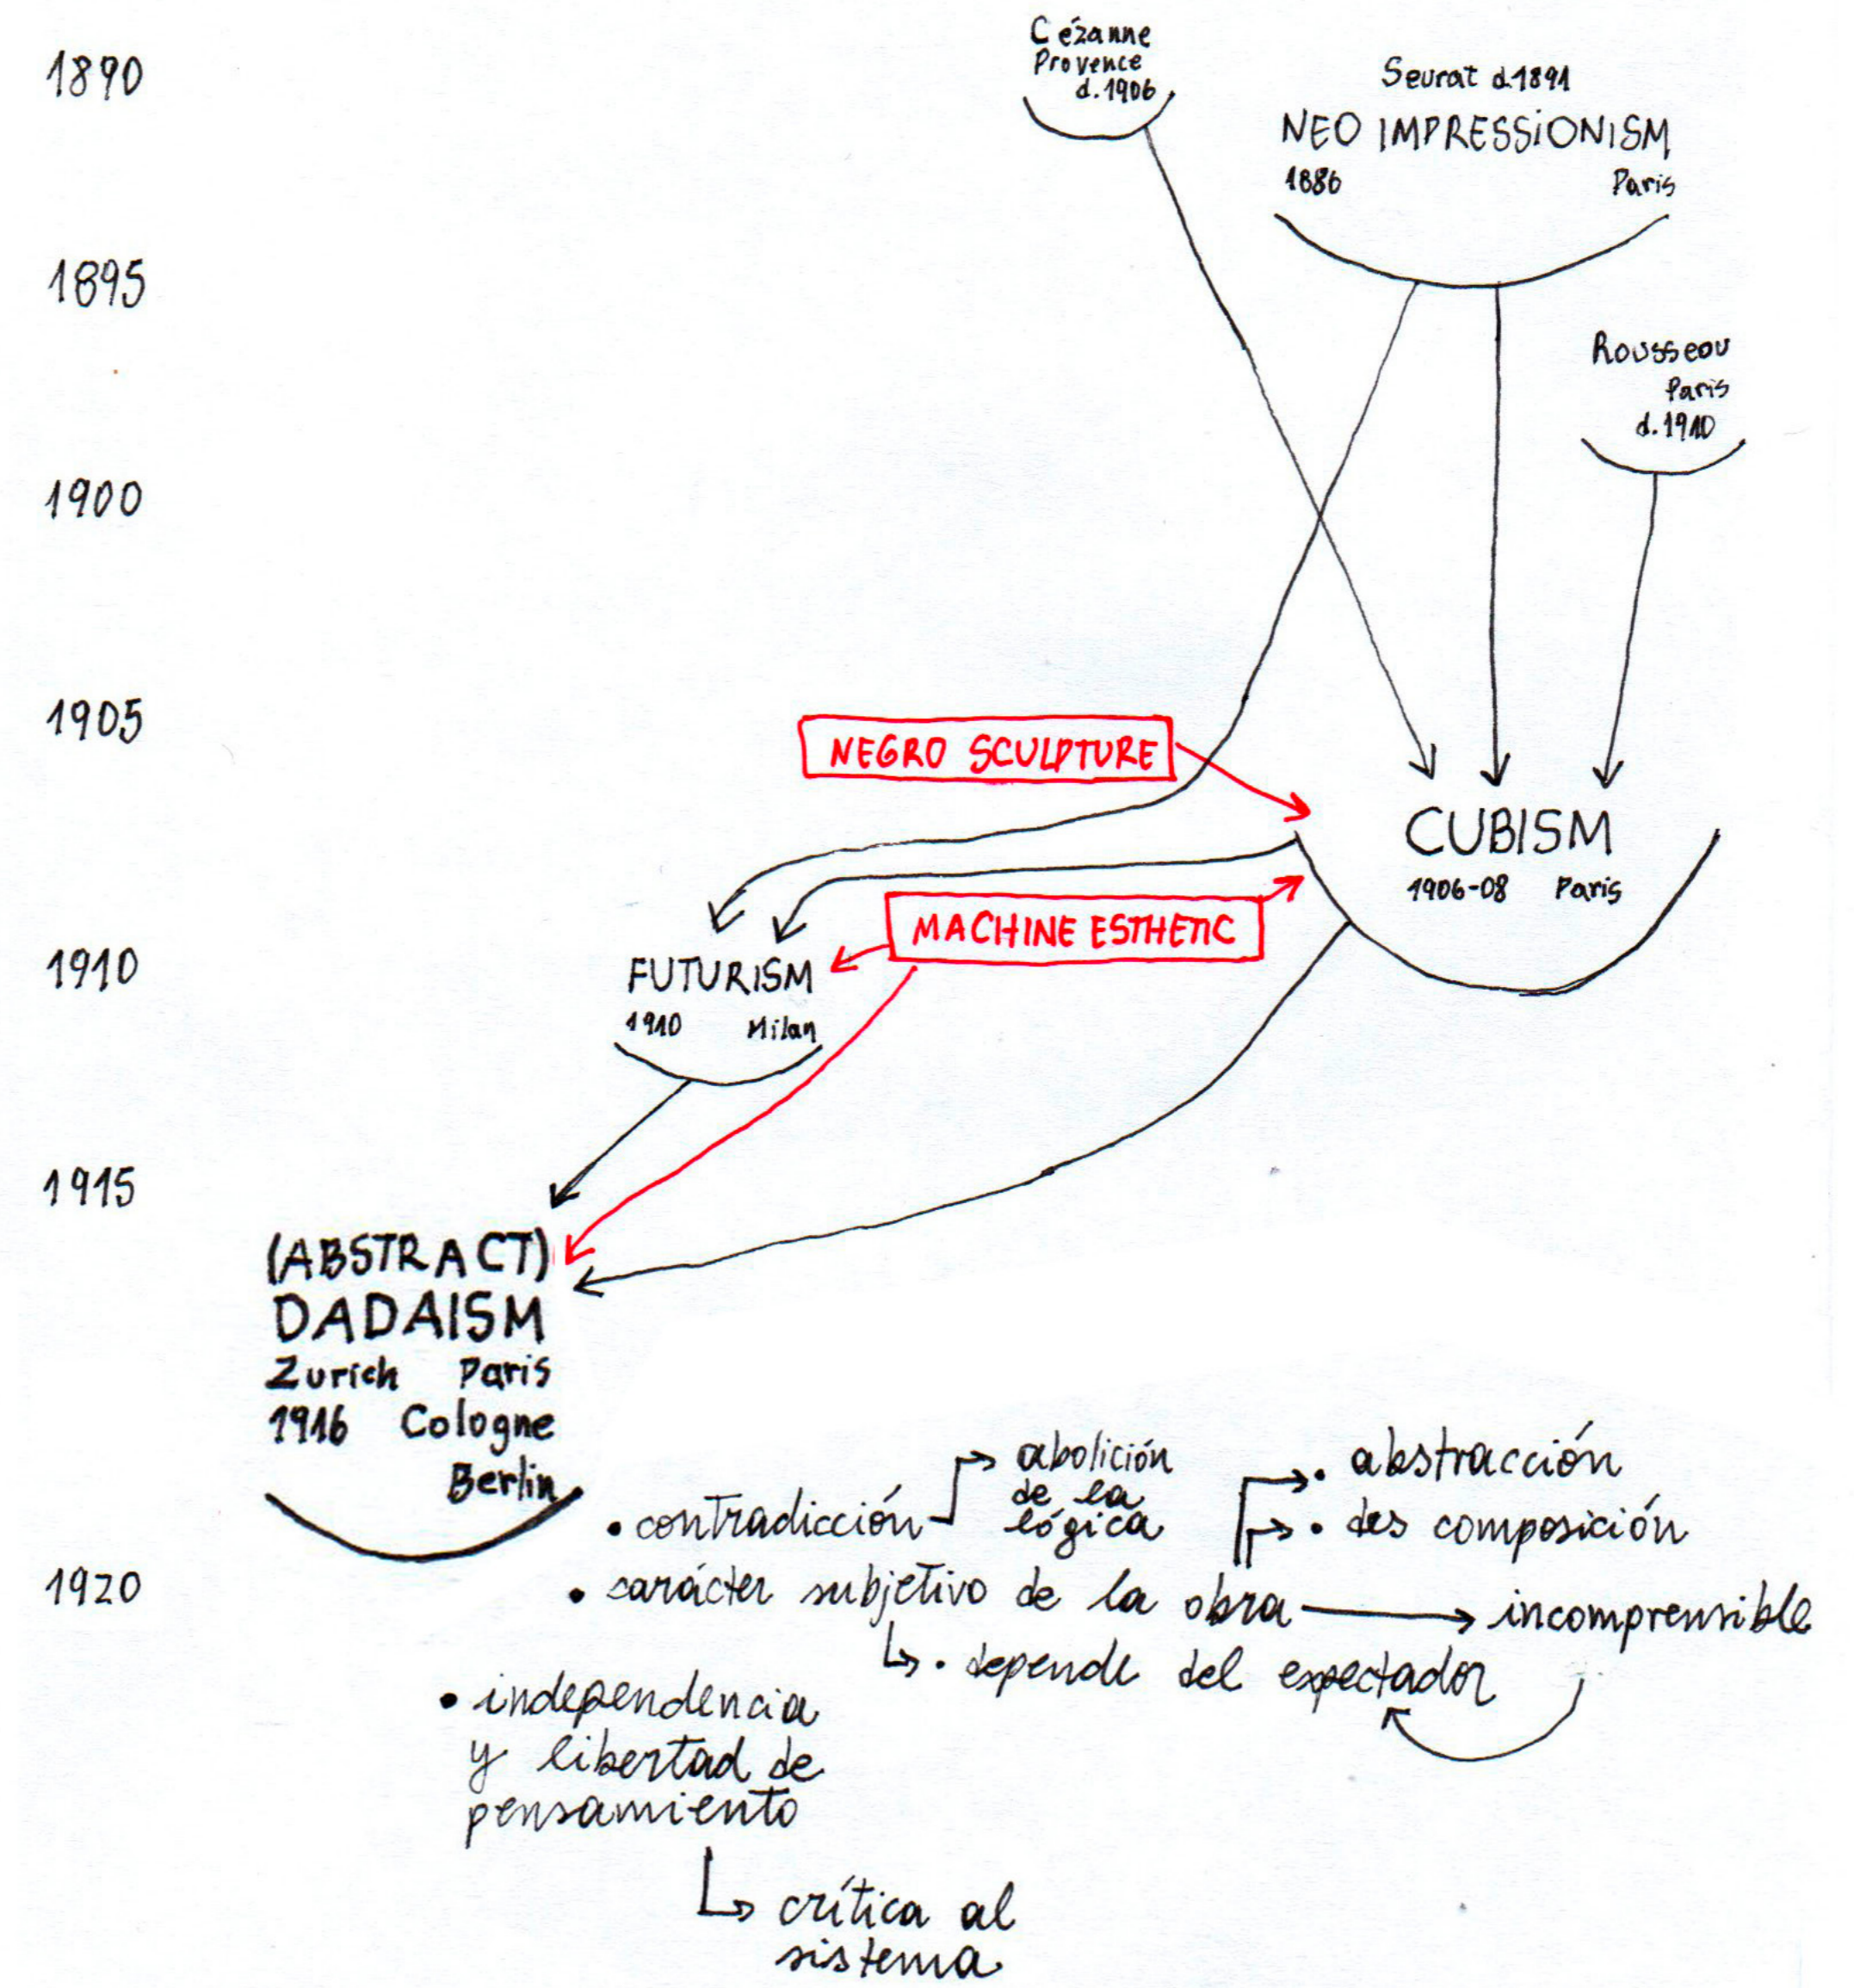 1890
Cézanne
Provence
d. 1906
Seurat d.1891
NEO IMPRESSIONISM
1886 Paris
1895
Rousseau
Paris
d. 1910
1900
1905
NEGRO SCULPTURE
CUBISM
1906-08 Paris
MACHINE ESTHETIC
1910
FUTURISM
1910 Milan
1915
(ABSTRACT)
DADAISM
Zurich Paris
1916 Cologne
Berlin
• contradicción
abolición
de la
lógica
• abstracción
• des composición
1920
• carácter subjetivo de la obra
incomprensible
• depende del expectador
• independencia
y libertad de
pensamiento
crítica al
sistema